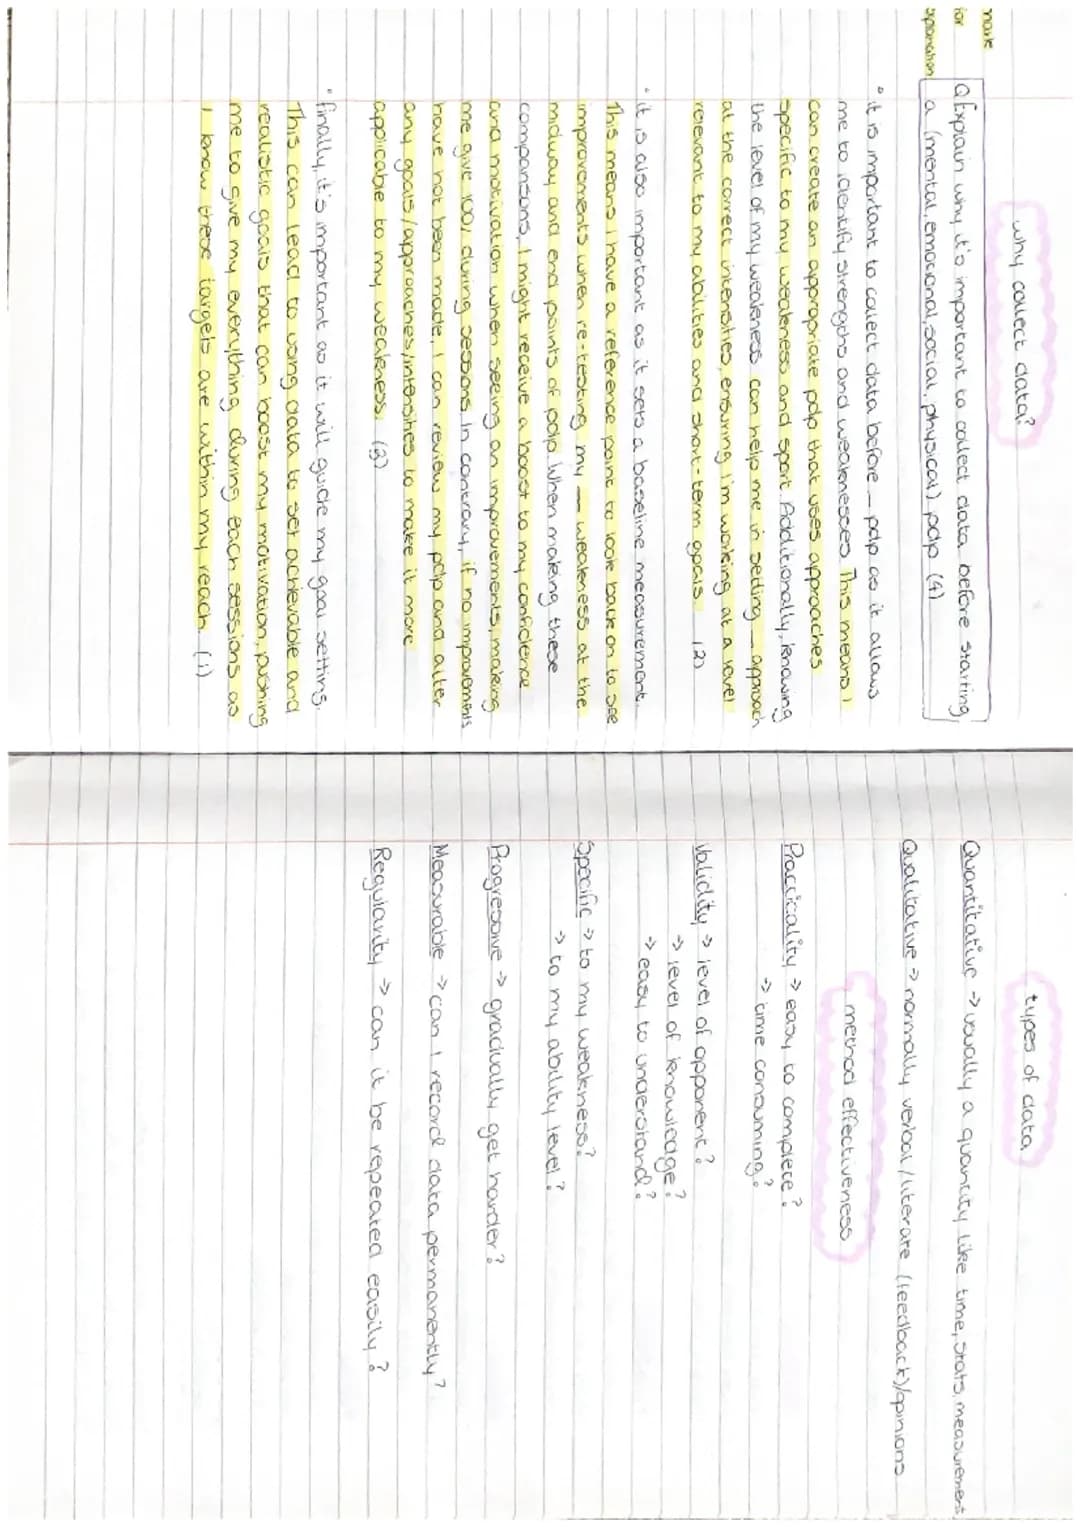 why collect data?
mark
for
explanation
Q Explain why it's important to collect data before starting
a (mental, emotional, social, physical) pdp (4)
• it is important to collect data before _ pdp as it allows
me to identify strengths and weaknesses. This means I
can create an appropriate pdp that uses approaches
specific to my weakness and sport. Additionally, knowing
the level of my weakness can help me in setting _ approach
at the correct intensities, ensuring I'm working at a level
relevant to my abilities and short-term goals. (2)
• it is also important as it sets a baseline measurement.
This means I have a reference point to look back on to see
improvements when re-testing my _ weakness at the
midway and end points of pdp. When making these
comparisons, I might receive a boost to my confidence
and motivation when seeing an improvements, making
me give 100% during sessions. In contrary, if no improvements
have not been made, I can review my pdp and alter
any goals/approaches/intensities to make it more
applicable to my weakness. (3)
• finally, it's important as it will guide my goal setting.
This can lead to using data to set achievable and
realistic goals that can boost my motivation, pushing
me to give my everything during each sessions as
I know these targets are within my reach. (1)
types of data
Quantitative → usually a quantity like time, stats, measurement
Qualitative → normally verbal/literate (feedback)/opinions
method effectiveness
Practicality → easy to complete?
→ time consuming?
Validity → level of opponent?
→ level of knowledge?
→ easy to understand?
Specific → to my weakness?
→ to my ability level?
Progressive → gradually get harder?
Measurable → can I record data permanently?
Regularity → can it be repeated easily?